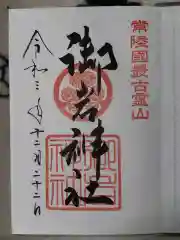 常陸國最古霊山
御岩神社
令和三年十二月二十二日